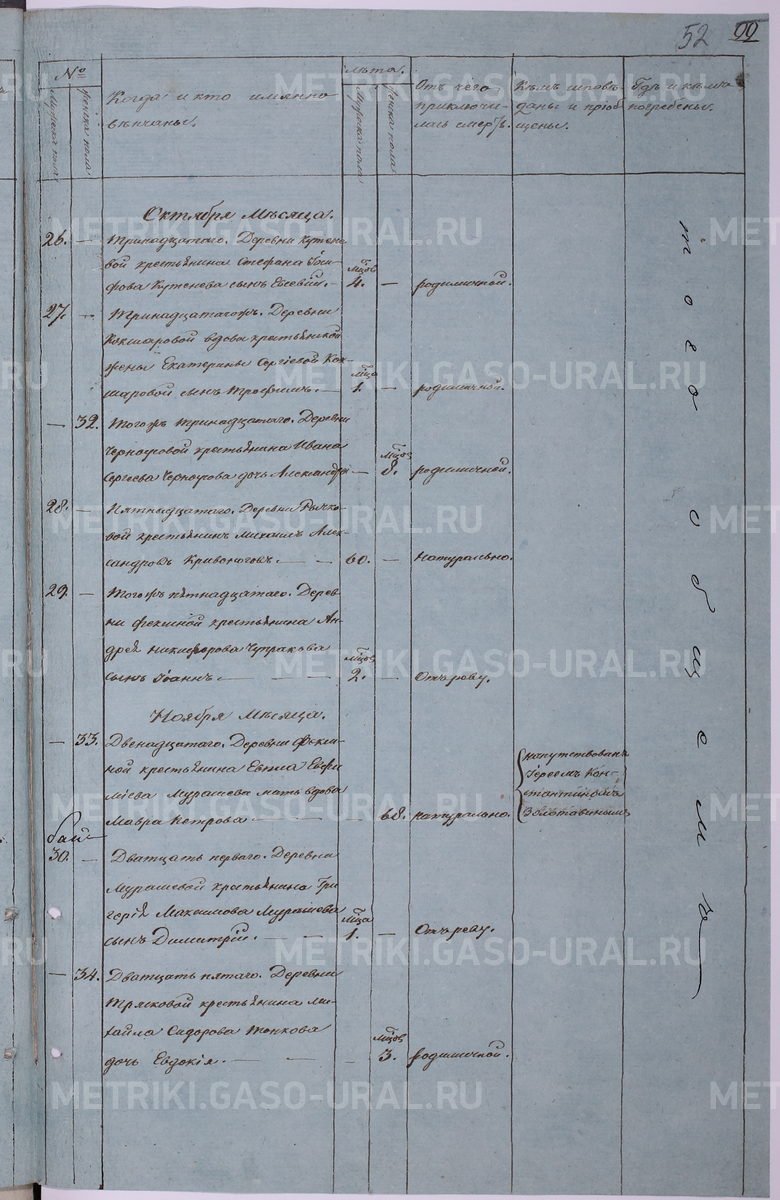 52 99
№
Мужеска пола
Женска пола
Когда и кто именно
вѣнчаны.
лѣта.
Мужеска пола
Женска пола
Отъ чего
приключи-
лась смерть.
Кѣмъ исповѣ-
даны и пріоб-
щены.
Гдѣ и кѣмъ
погребены.
Октября Мѣсяца.
26. — Тринадцатаго. Деревни Кутене-
вой крестьянина Стефана
Кутенева сынъ Евсевій. — мѣсяцов 4. — родимичной.
27. — Тринадцатагожъ. Деревни
Кокшаровой вдова крестьянской
жены Екатерины Сергіевой Кок-
шаровой сынъ Трофимъ. — мѣсяца 1. — родимичной.
— 32. Тогожъ тринадцатаго. Деревни
Черноуховой крестьянина Ивана
Сергеева дочь Александра — мѣсяцов 8. родимичной.
28. — Пятнадцатаго. Деревни Рычко-
вой крестьянинъ Михаилъ Алек-
сандровъ Кривоноговъ. — — 60. — Натурально.
29. — Тогожъ пятнадцатаго. Дерев-
ни Фекиной крестьянина Ан-
дрея Никифорова Чупракова
сынъ Іоаннъ. — — мѣсяцов 2. — Отъ реву.
Ноября Мѣсяца.
— 33. Двенадцатаго. Деревни Феки-
ной крестьянина Евфи-
міева Мурашева мать вдова
Мавра Петрова — — 68. натурально.
напутствована
Іереемъ Кон-
стантиномъ
Золотавинымъ
30. — Дватцать перваго. Деревни
Мурашевой крестьянина Гри
горія Максимова Мурашева
сынъ Димитрій. — — мѣсяца 1. — Отъ реву.
— 34. Дватцать пятаго. Деревни
Трясковой крестьянина Ми-
хайла Сидорова Тонкова
дочь Евдокія. — — — мѣсяцов 3. родимичной.
общемъ
METRIKI.GASO-URAL.RU